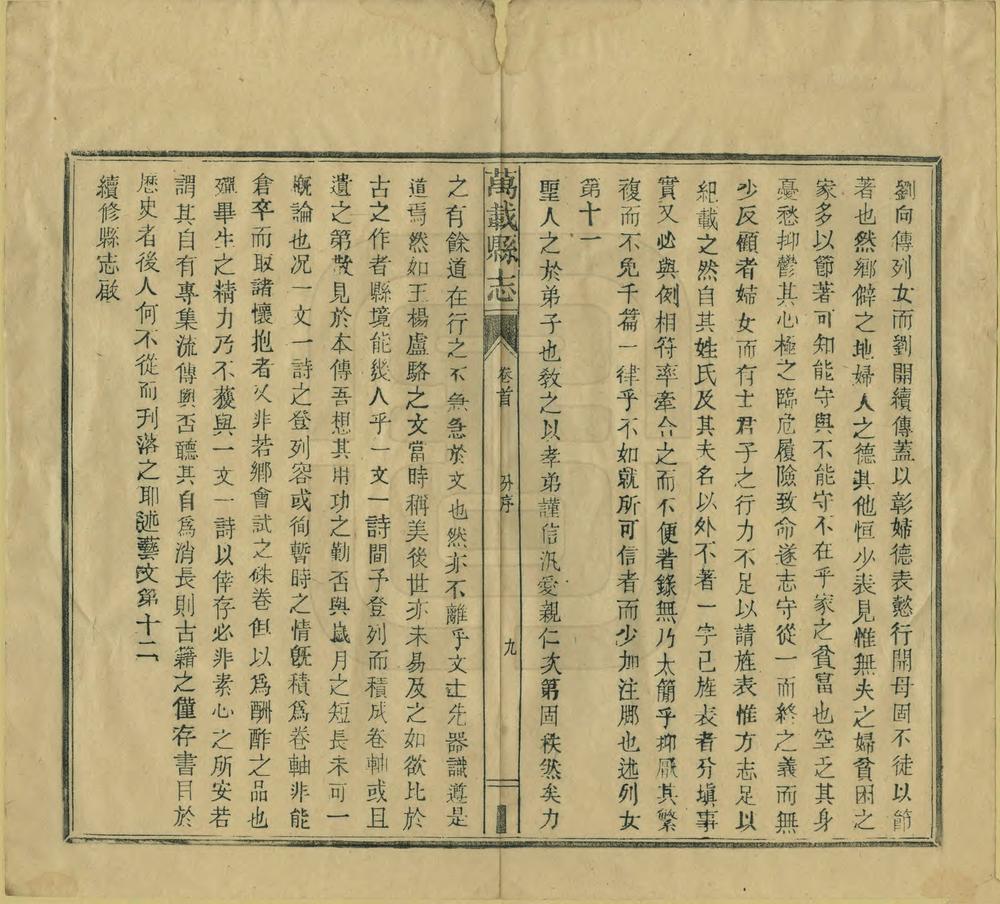 劉向傳列女而劉開續傳蓋以彰婦德表懿行開母固不徒以節
著也然鄉僻之地婦人之德其他恒少表見惟無夫之婦貧困之
家多以節著可知能守與不能守不在乎家之貧富也空乏其身
憂愁抑鬱其心極之臨危履險致命遂志守從一而終之義而無
少反顧者婦女而有士君子之行力不足以請旌表惟方志足以
紀載之然自其姓氏及其夫名以外不著一字已旌表者分填事
實又必與例相符率牽合之而不便著錄無乃太簡乎抑厭其繁
複而不免千篇一律乎不如就所可信者而少加注腳也述列女
第十一
聖人之於弟子也敎之以孝弟謹信汎愛親仁次第固秩然矣力
萬載縣志
卷首
分序
九
之有餘道在行之不急急於文也然亦不離乎文士先器識遵是
道焉然如王楊盧駱之文當時稱美後世亦未易及之如欲比於
古之作者縣境能幾人乎一文一詩間予登列而積成卷軸或且
遺之第散見於本傳吾想其用功之勤否與歲月之短長未可一
槪論也况一文一詩之登列容或徇暫時之情旣積爲卷軸非能
倉卒而取諸懷抱者又非若鄉會試之硃卷但以爲酬酢之品也
殫畢生之精力乃不獲與一文一詩以倖存必非素心之所安若
謂其自有專集流傳與否聽其自爲消長則古籍之僅存書目於
歷史者後人何不從而刋落之耶述藝文第十二
續修縣志啟